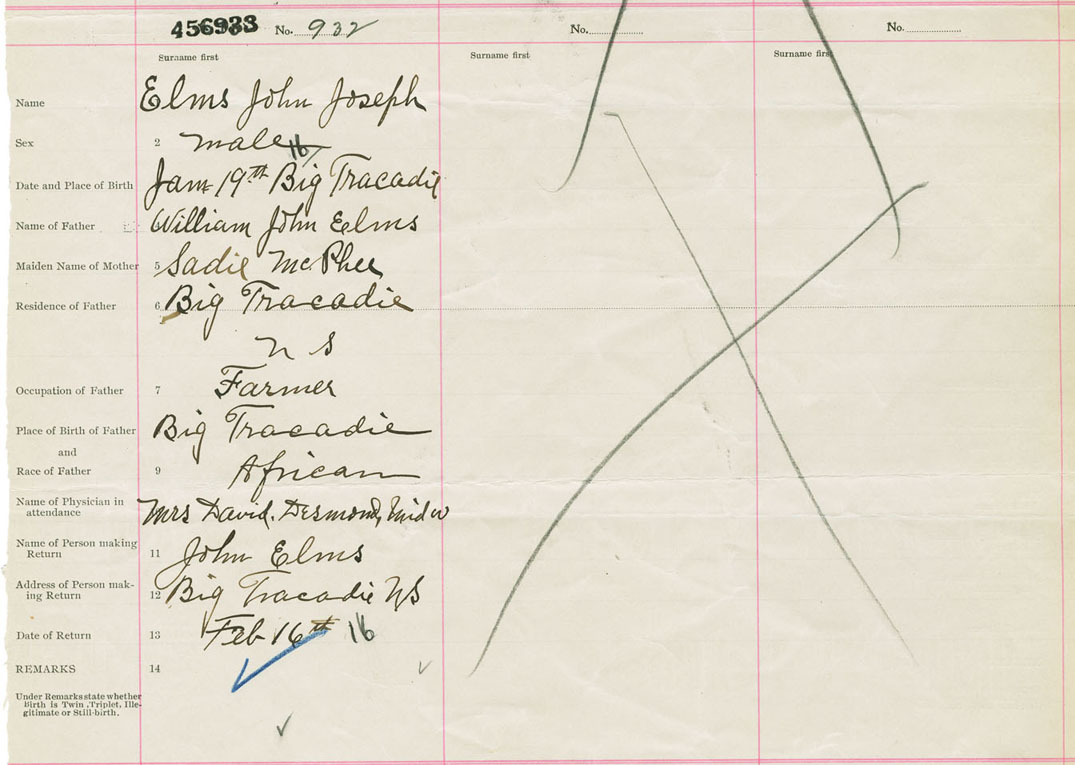 456933 No. 932 No. No.
Surname first Surname first Surname first
Name Elms John Joseph
Sex 2 male
16
Date and Place of Birth Jan 19th Big Tracadie
Name of Father William John Elms
Maiden Name of Mother 5 Sadie McPhee
Residence of Father 6 Big Tracadie
N S
Occupation of Father 7 Farmer
Place of Birth of Father Big Tracadie
and
Race of Father 9 African
Name of Physician in
attendance Mrs David. Desmond,
Name of Person making
Return 11 John Elms
Address of Person mak-
ing Return 12 Big Tracadie NS
Date of Return 13 Feb 16th 16
REMARKS 14
Under Remarks state whether
Birth is Twin, Triplet, Ille-
gitimate or Still-birth.